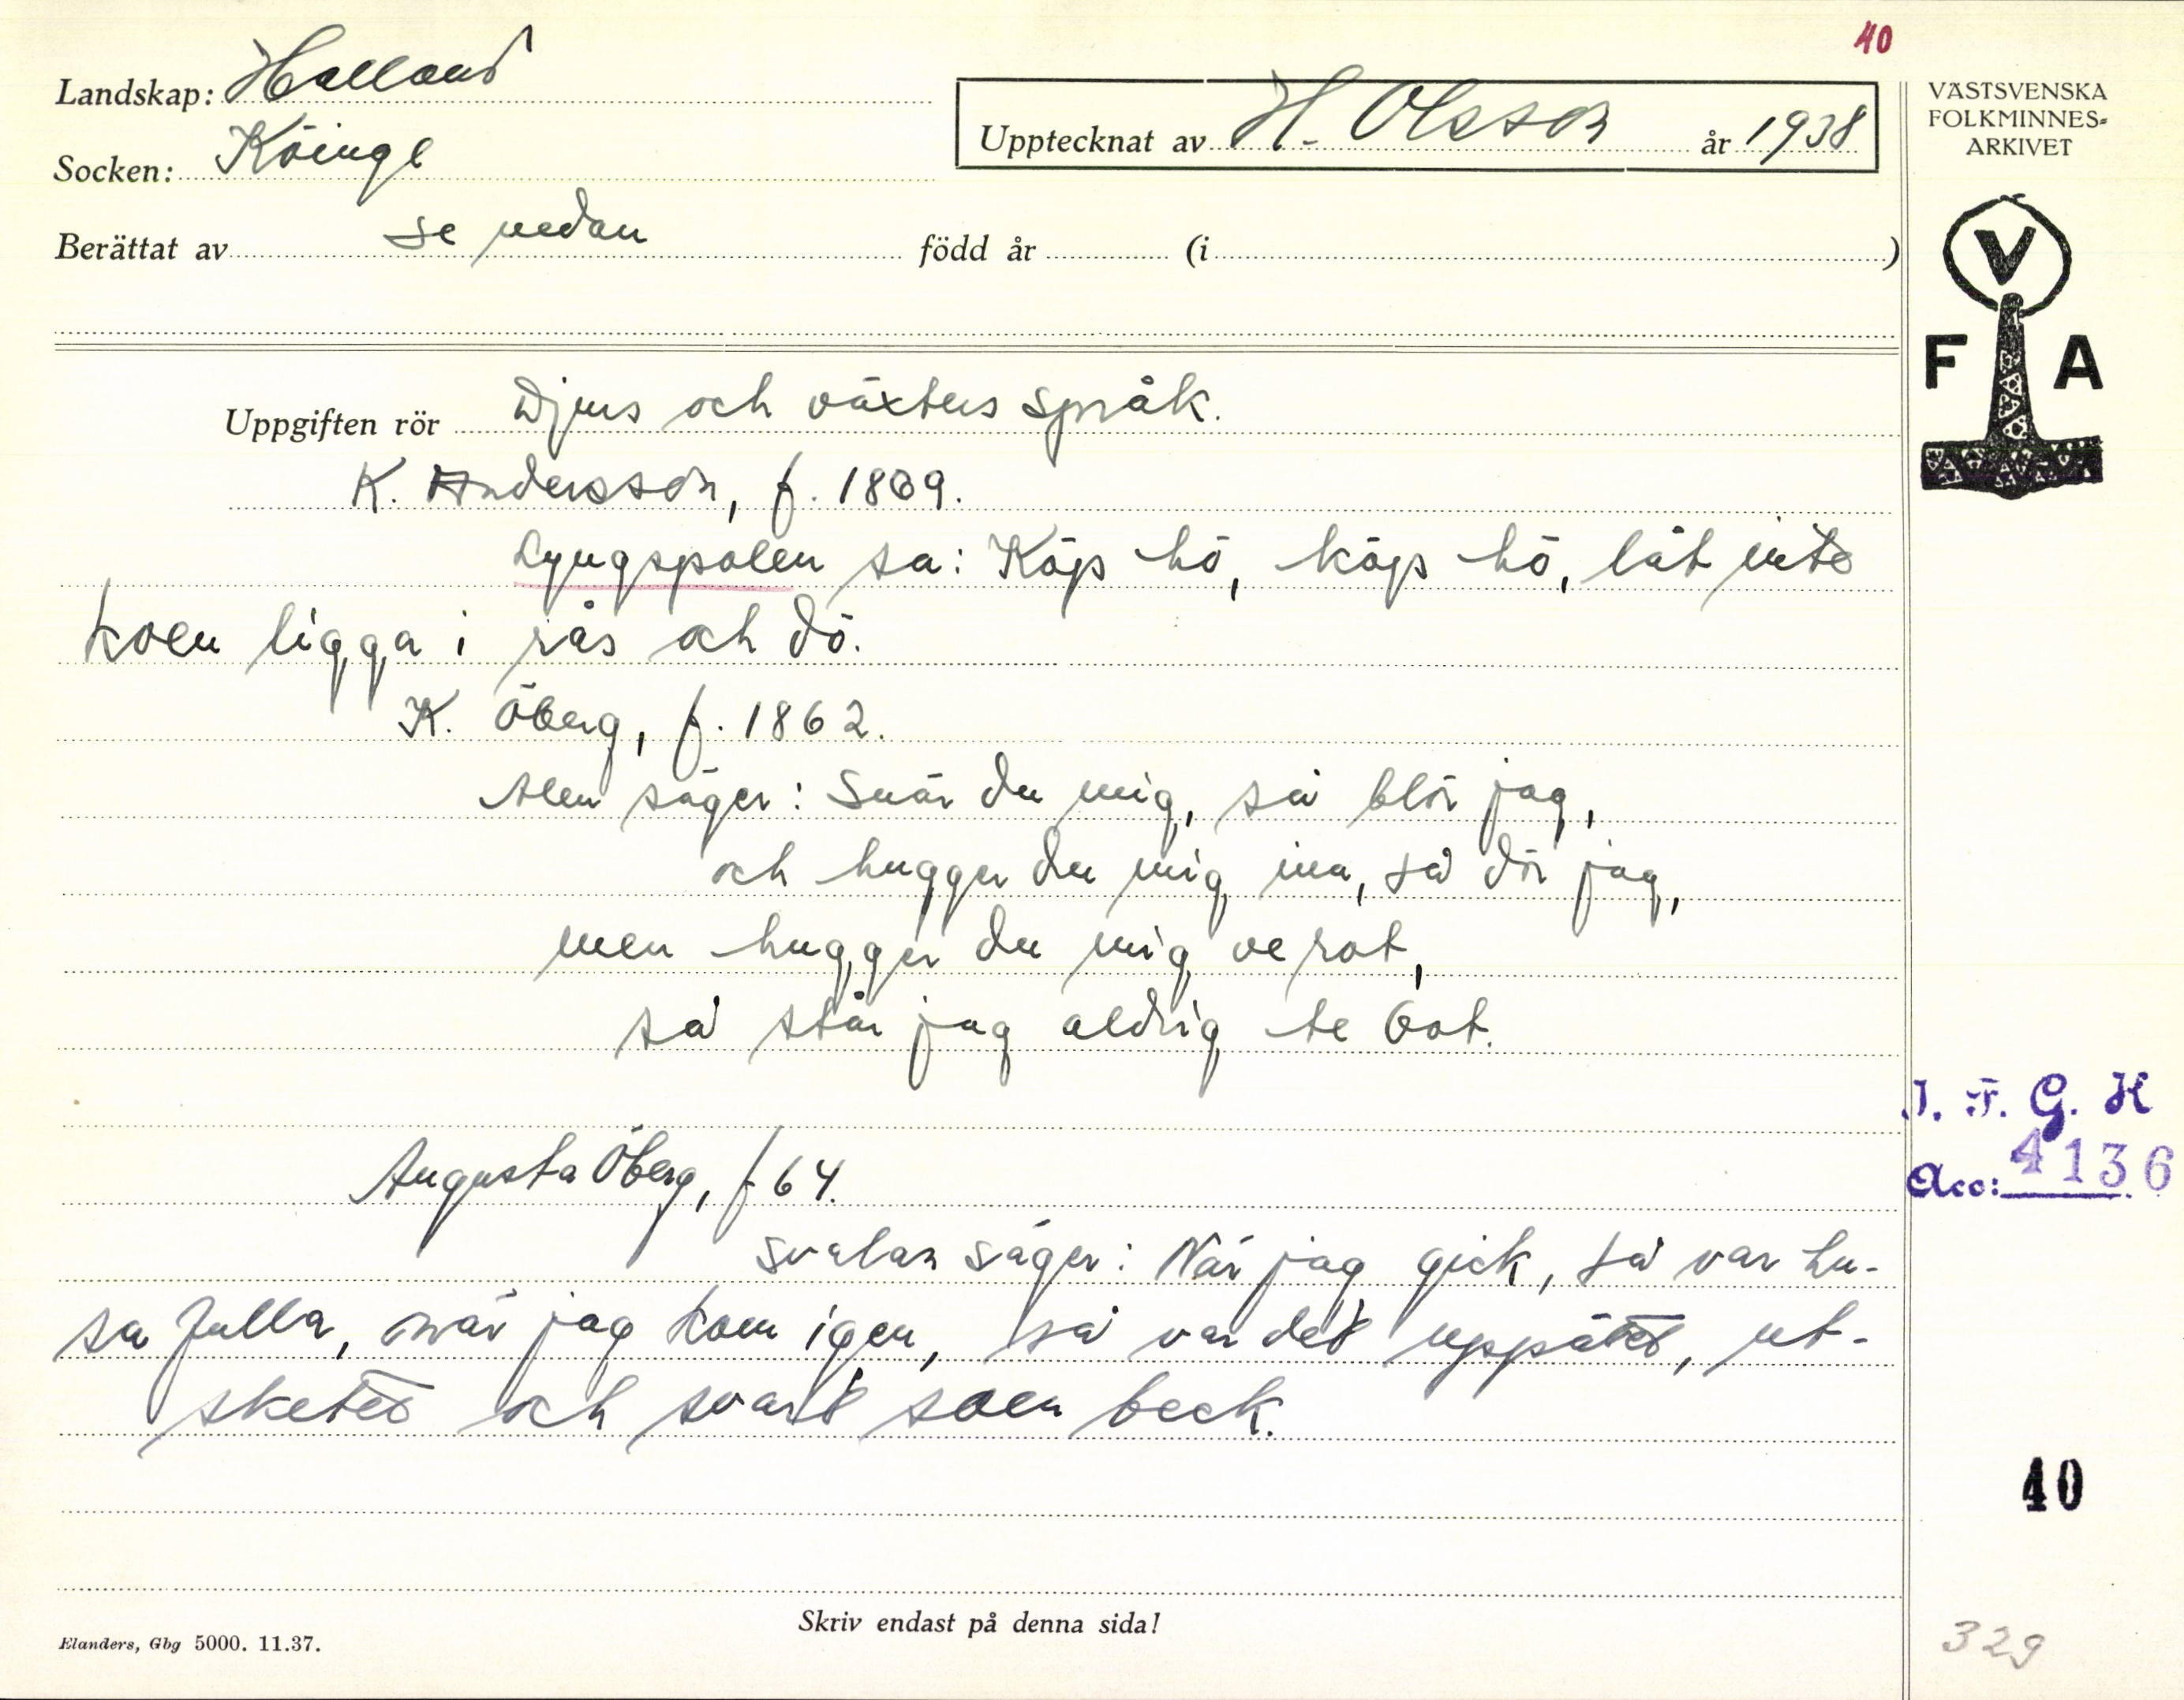 40
Landskap: Halland
Socken: Köinge
Berättat av se nedan född år (i )
Upptecknat av H. Olsson år 1938
VÄSTSVENSKA
FOLKMINNES-
ARKIVET
V
F A
Uppgiften rör Djurs och växters språk.
K. Andersson, f. 1869.
Lyngspolen sa: Köp hö, köp hö, låt inte
koen ligga i rås och dö.
K. Öberg, f. 1862.
Alen säger: Snär du mig, så blör jag,
och hugger du mig ina, så dör jag,
men hugger du mig ve rot,
så står jag aldrig te bot.
Augusta Öberg, f 64.
Svalan säger: När jag gick, så var hu-
sa fulla, när jag kom igen, så var det uppätet, ut-
sketet och svart som beck.
J. F. G. H
Acc: 4136
40
329
Skriv endast på denna sida!
Elanders, Gbg 5000. 11.37.